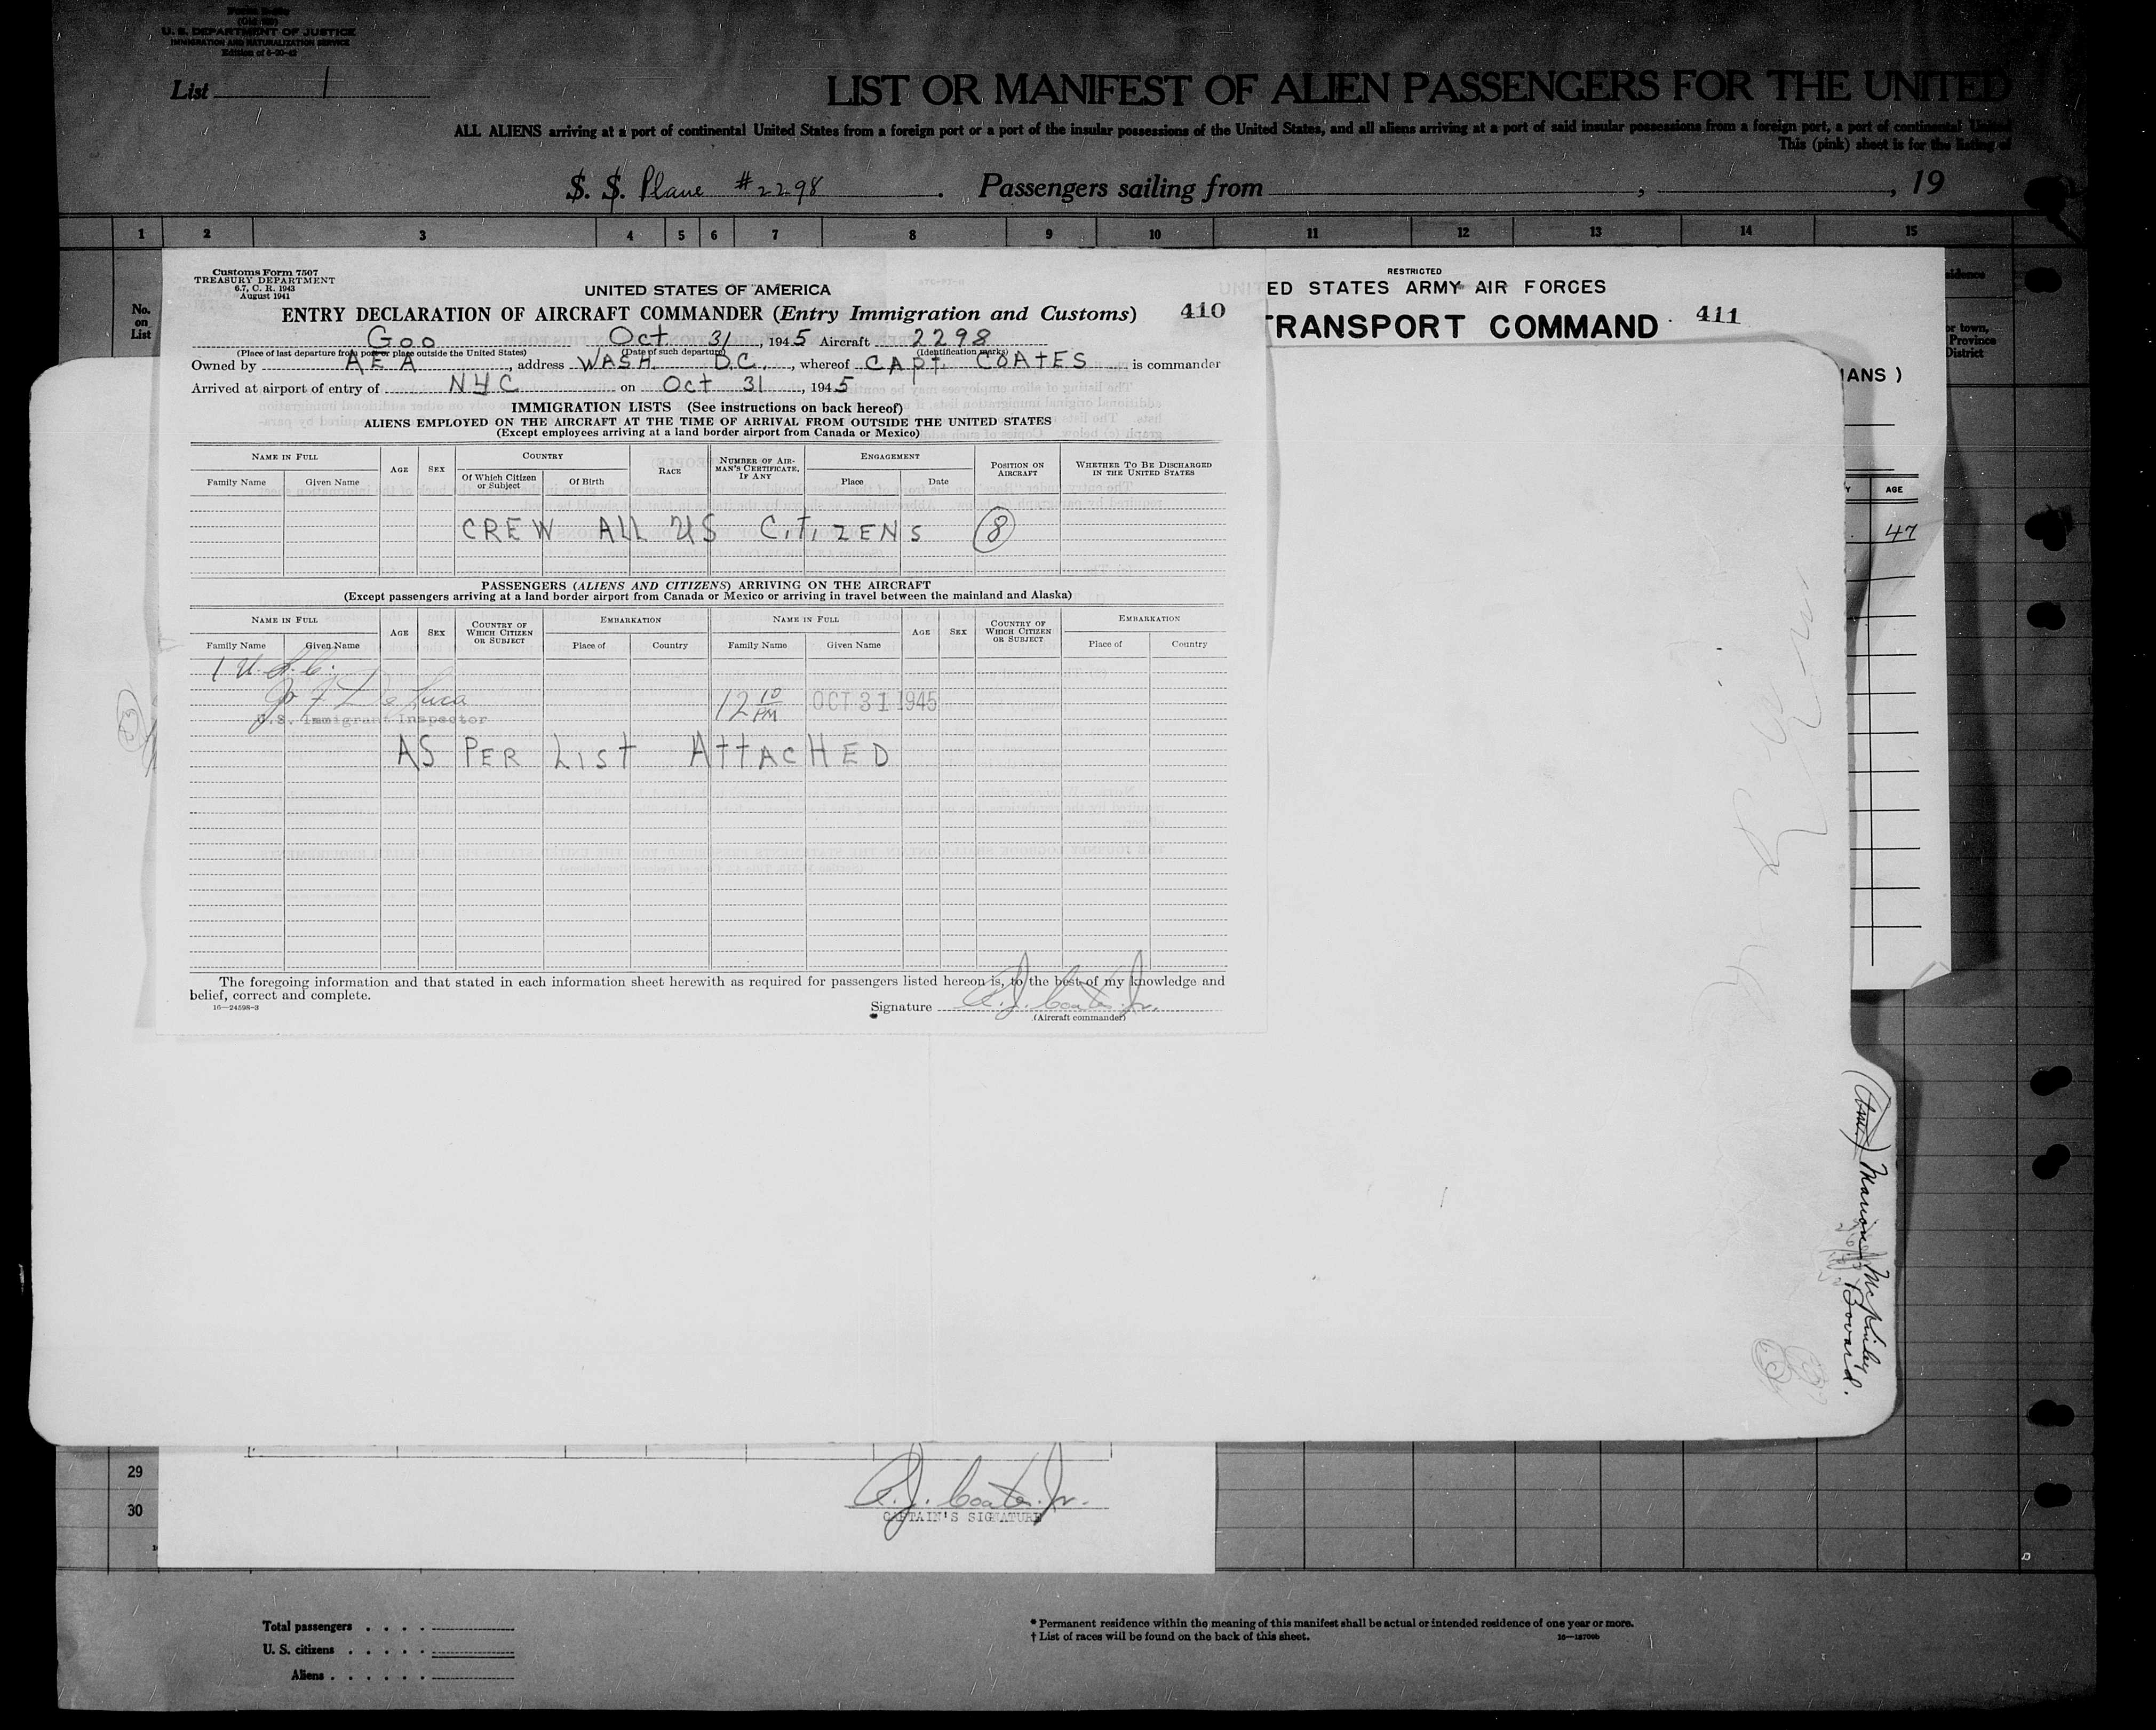 U. S. DEPARTMENT OF JUSTICE
IMMIGRATION AND NATURALIZATION SERVICE
List 1
LIST OR MANIFEST OF ALIEN PASSENGERS FOR THE UNITED
ALL ALIENS arriving at a port of continental United States from a foreign port or a port of the insular possessions of the United States, and all aliens arriving at a port of said insular possessions from a foreign port, a port of continental United
This (pink) sheet is for the listing of
S. S. Plane #2298 . Passengers sailing from , , 19
1 2 3 4 5 6 7 8 9 10 11 12 13 14 15
No. on List
Customs Form 7507
TREASURY DEPARTMENT
6.7, C. R. 1943
August 1941
UNITED STATES OF AMERICA
ENTRY DECLARATION OF AIRCRAFT COMMANDER (Entry Immigration and Customs) 410
Goo Oct 31, 1945 Aircraft 2298
(Place of last departure from port or place outside the United States) (Date of such departure) (Identification marks)
Owned by AEA, address WASH. D.C., whereof CAPT. COATES is commander
Arrived at airport of entry of NYC on Oct 31, 1945
IMMIGRATION LISTS (See instructions on back hereof)
ALIENS EMPLOYED ON THE AIRCRAFT AT THE TIME OF ARRIVAL FROM OUTSIDE THE UNITED STATES
(Except employees arriving at a land border airport from Canada or Mexico)
NAME IN FULL AGE SEX COUNTRY RACE NUMBER OF AIRMAN'S CERTIFICATE, IF ANY ENGAGEMENT POSITION ON AIRCRAFT WHETHER TO BE DISCHARGED IN THE UNITED STATES
Family Name Given Name Of Which Citizen or Subject Of Birth Place Date
CREW ALL US CITIZENS 8
PASSENGERS (ALIENS AND CITIZENS) ARRIVING ON THE AIRCRAFT
(Except passengers arriving at a land border airport from Canada or Mexico or arriving in travel between the mainland and Alaska)
NAME IN FULL AGE SEX COUNTRY OF WHICH CITIZEN OR SUBJECT EMBARKATION NAME IN FULL AGE SEX COUNTRY OF WHICH CITIZEN OR SUBJECT EMBARKATION
Family Name Given Name Place of Country Family Name Given Name Place of Country
1 U.S.C.
De Luca
U.S. Immigrant Inspector
12 10 PM OCT 31 1945
AS PER LIST ATTACHED
The foregoing information and that stated in each information sheet herewith as required for passengers listed hereon is, to the best of my knowledge and
belief, correct and complete.
16—24598-3
Signature Coates Jr.
(Aircraft commander)
RESTRICTED
ED STATES ARMY AIR FORCES
TRANSPORT COMMAND 411
IANS )
Y AGE
47
or town,
Province
District
Marion McKinley
Bovard.
29
30
Coates Jr.
CAPTAIN'S SIGNATURE
Total passengers
U. S. citizens
Aliens
* Permanent residence within the meaning of this manifest shall be actual or intended residence of one year or more.
† List of races will be found on the back of this sheet.